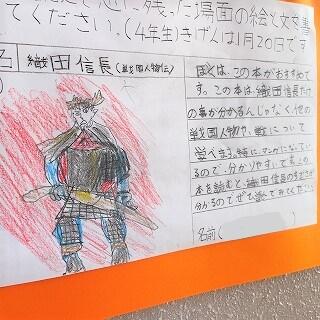 に残った場面の絵と文を書
てください。(4年生)きげんは1月20日です
名 織田信長(戦国人物伝)
ぼくは、この本がおすすめで
す。この本は、織田信長だけ
の事が分かるんじゃなく、他の
戦国人物や、戦について
学べます。特にマンガになってい
るので、分かりやすいです。この
本を読むと、織田信長の
分かるのでぜひ読んでみてください。
名前(